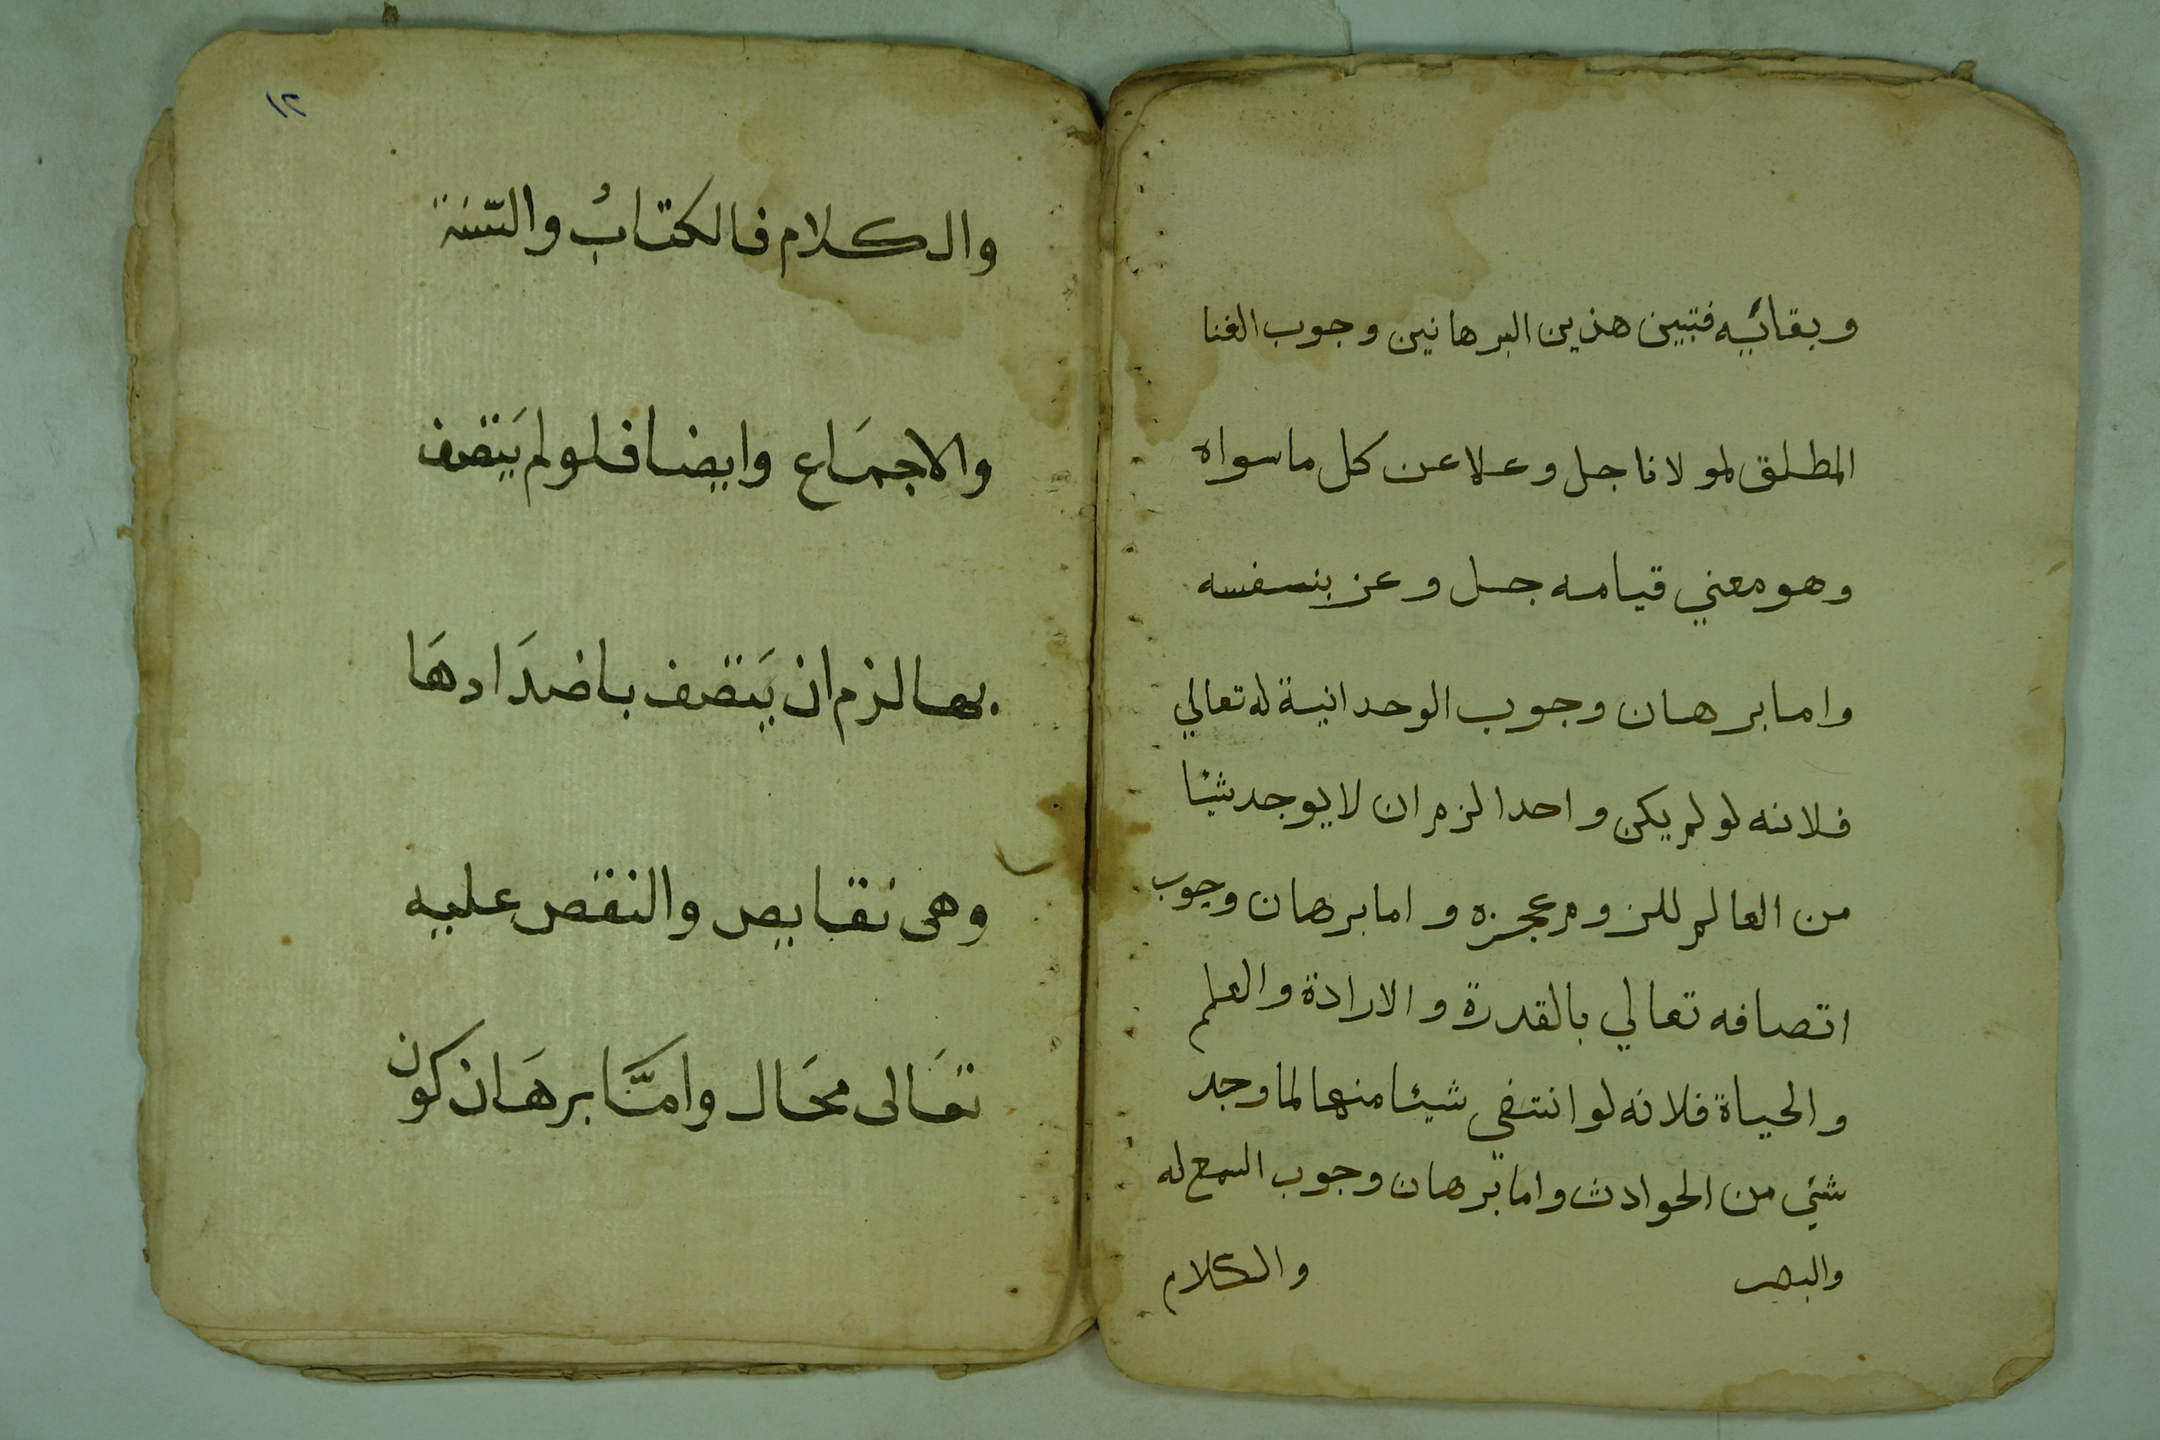 وبقائيه فتبين هذين البرهانين وجوب الغنا
المطلق لمولانا جل وعلا عن كل ما سواه
وهو معني قيامه جل وعز بنسفسه
واما برهان وجوب الوحدانية له تعالي
فلانه لو لم يكن واحدا لزم ان لا يوجد شيئا
من العالم للزوم عجزه واما برهان وجوب
اتصافه تعالي بالقدرة والارادة والعلم
والحياة فلانه لو انتفي شيئا منها لما وجد
شئي من الحوادث واما برهان وجوب السمع له
والبصر والكلام
١٢
والكلام فالكتابُ والسّنة
والاجمَاع وايضا فلو لم يَتصف
بها لزم ان يَتصف باضدَادهَا
وهى نقايص والنقص عليه
تعَالى محَال وامَّا برهَان كون